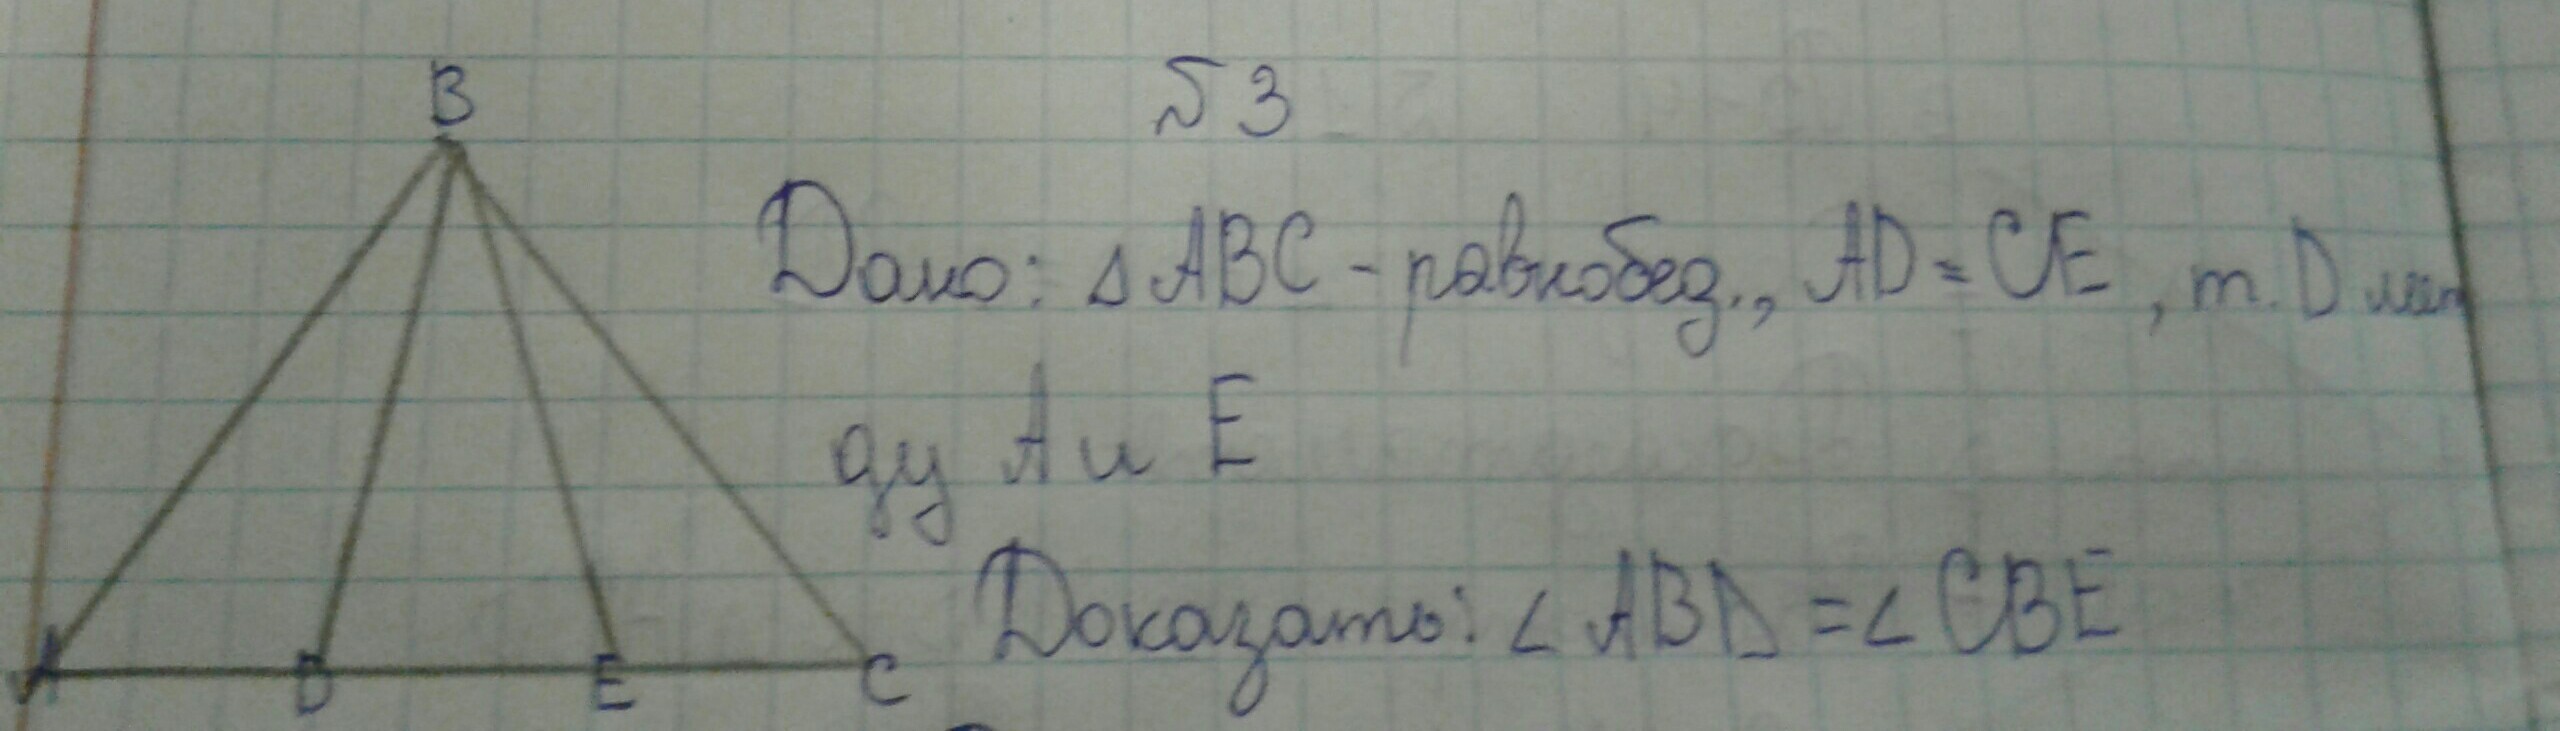 B
№ 3
Дано: △ ABC - равнобед., AD = CE, т. D меж
ду A и E
Доказать: ∠ ABD = ∠ CBE
A D E C